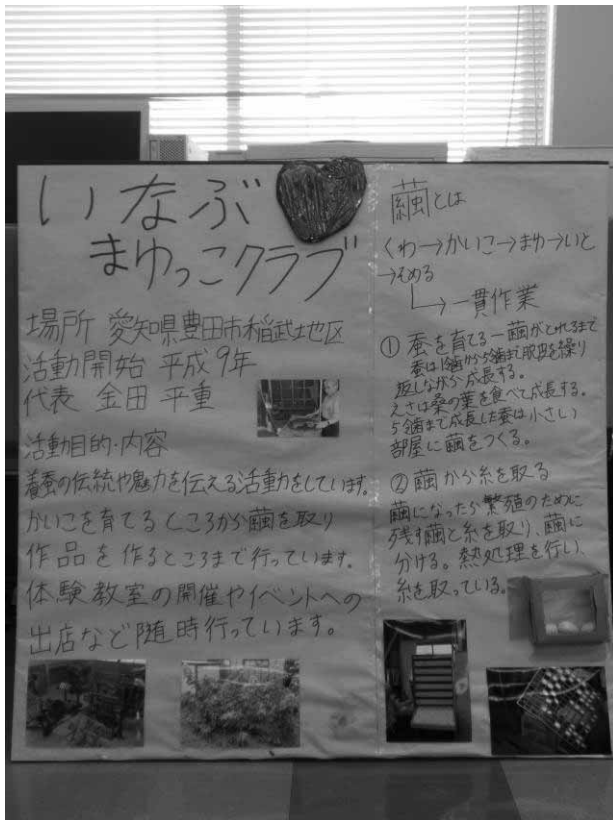 いなぶ
まゆっこクラブ
場所 愛知県豊田市稲武地区
活動開始 平成9年
代表 金田 平重
活動目的・内容
養蚕の伝統や魅力を伝える活動をしています。
かいこを育てるところから繭を取り
作品を作るところまで行っています。
体験教室の開催やイベントへの
出店など随時行っています。
繭とは
くわ→かいこ→まゆ→いと
→そめる
→一貫作業
① 蚕を育てる―繭がとれるまで
蚕は1齢から5齢まで脱皮を繰り
返しながら成長する。
えさは桑の葉を食べて成長する。
5齢まで成長した蚕は小さい
部屋に繭をつくる。
② 繭から糸を取る
繭になったら繁殖のために
残す繭と糸を取り、繭に
分ける。熱処理を行い、
糸を取っている。